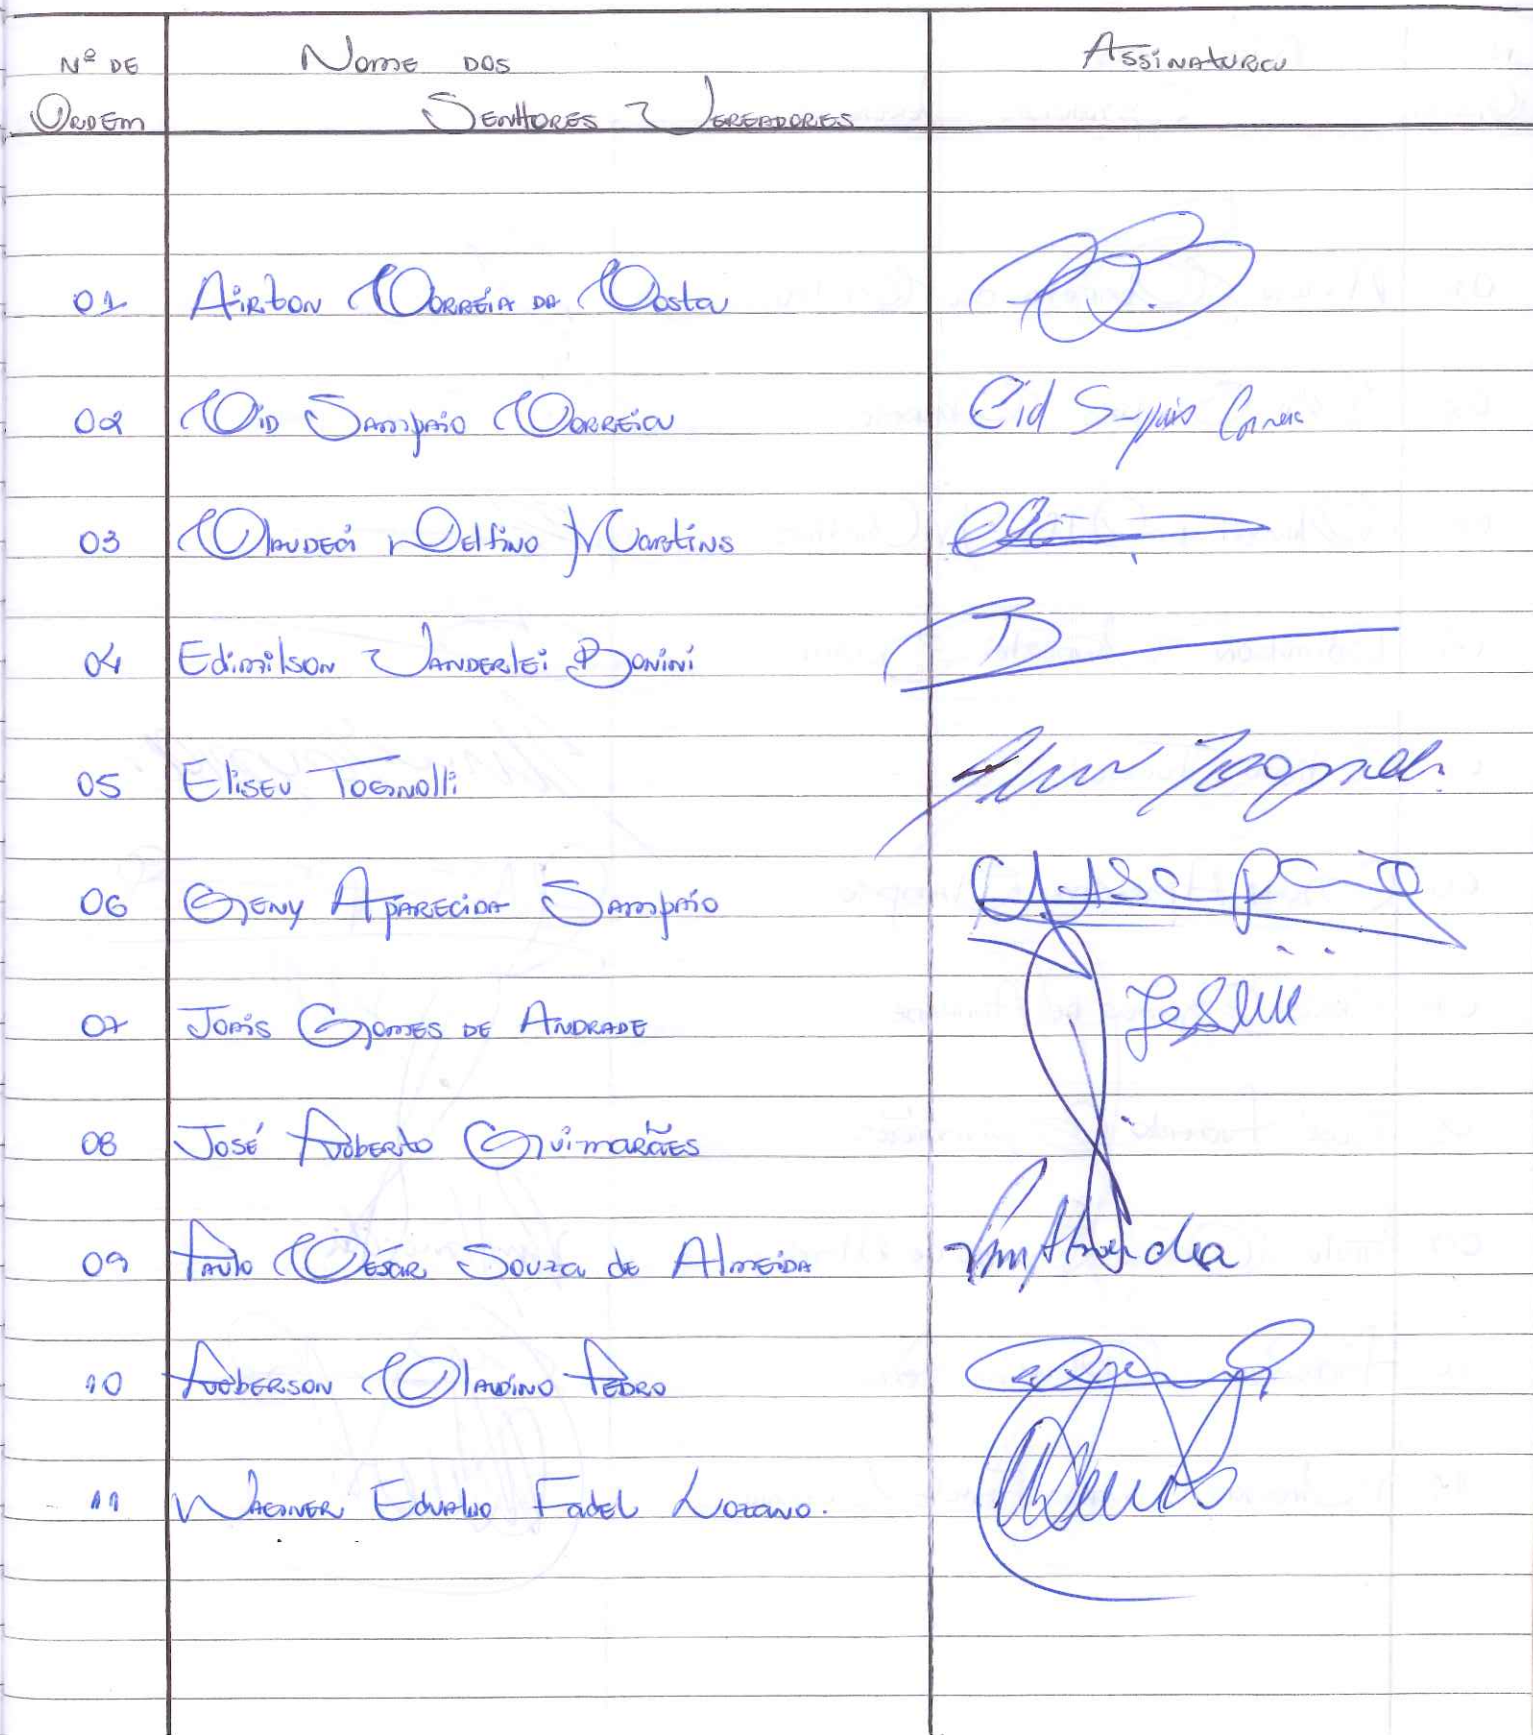 Nº DE Nome dos Assinatura
Ordem Senhores Vereadores
01 Airton Correia da Costa
02 Cid Sampaio Correia Cid Sampaio Correia
03 Claudeci Delfino Martins
04 Edimilson Vanderlei Bonini
05 Eliseu Tognolli
06 Geny Aparecida Sampaio
07 Jonis Gomes de Andrade
08 José Roberto Guimarães
09 Paulo César Souza de Almeida
10 Roberson Claudino Pedro
11 Wagner Edvaldo Fadel Lozano.